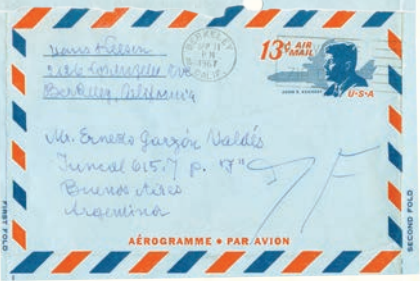 Hans Kelsen
2126 Los Angeles Ave
Berkeley, California
BERKELEY
11
PM
1967
CALIF.
13¢ AIR
MAIL
JOHN F. KENNEDY
U·S·A
Mr. Ernesto Garzón Valdés
Juncal 615, 7 p. "F"
Buenos Aires
Argentina
FIRST FOLD
SECOND FOLD
AÉROGRAMME • PAR AVION